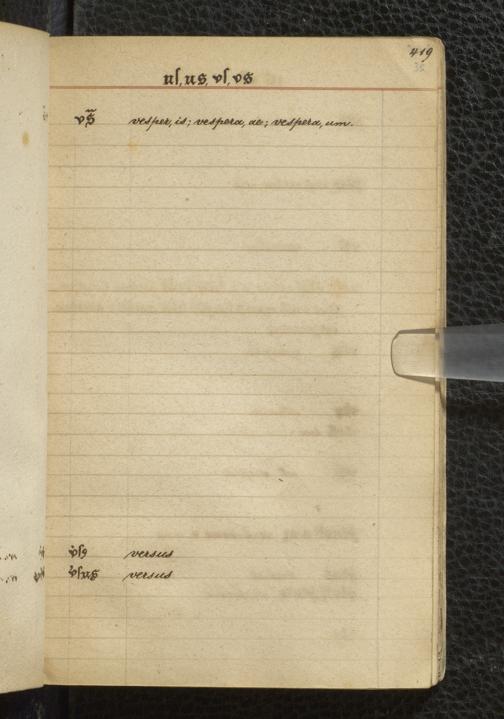 419
36
uſ, us, vſ, vs
vs̄ vesper, is; vespera, ae; vespera, um.
v̾ſ9 versus
v̾ſus versus